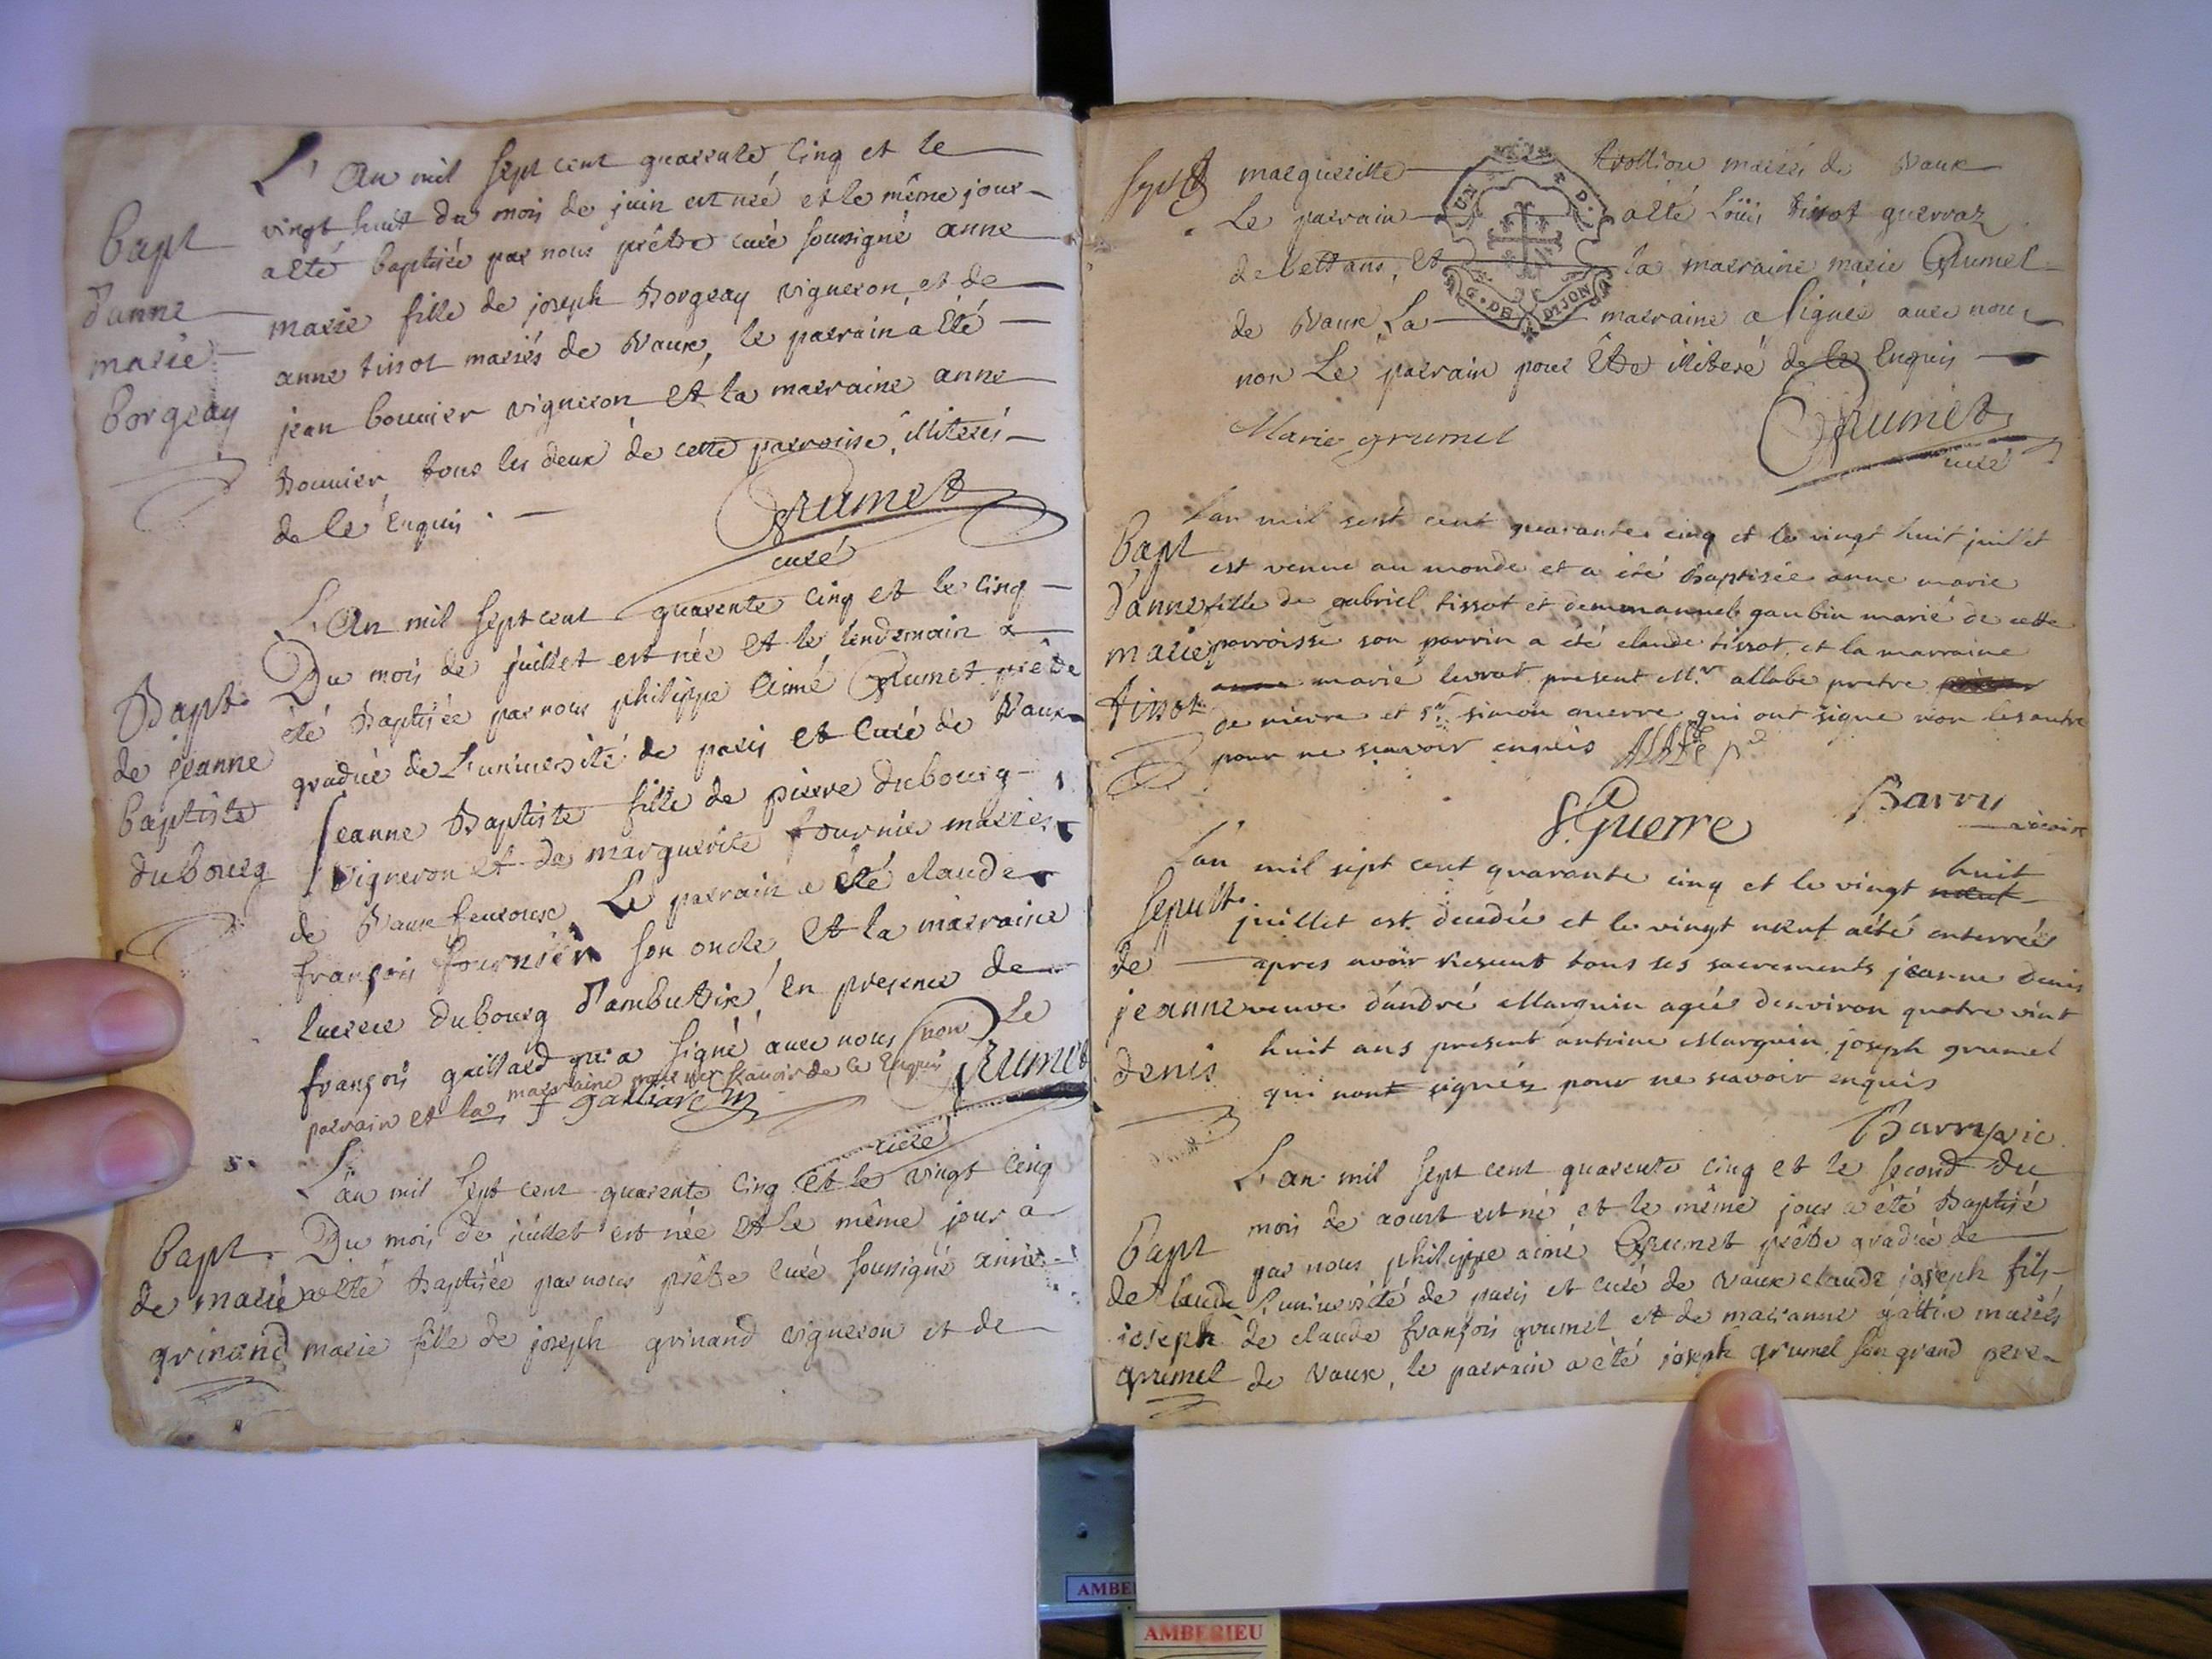 L'an mil sept cent quarente cinq et le
vingt huit du mois de juin est née et le même jour
a été baptisée par nous prêtre curé soussigné anne
marie fille de joseph Borgeay vigneron et de
anne tissot mariés de Vaux, le parrain a été
jean bonnier vigneron et la marraine anne
Bonnier tous les deux de cette parroisse, illiterés
de ce enquis.
Grumet
curé
Bapt
d'anne
marie
borgeay
L'an mil sept cent quarente cinq et le cinq
Du mois de juillet est née et le lendemain a
été Baptisée par nous philippe aimé Grumet prêtre
gradué de L'université de paris et curé de Vaux
jeanne Baptiste fille de pierre dubourg
vigneron et de marguerite fournier mariés
de Vaux Le parrain a été claude
françois fournier son oncle, et la marraine
dubourg d'ambutrix, en presence de
françois gaillard qui a signé avec nous non Le
parrain et la marraine pour ne sçavoir de ce enquis
Grumet
curé
Bapt
de jeanne
baptiste
dubourg
L'an mil sept cent quarente cinq et le vingt cinq
Du mois de juillet est née et le même jour a
a été Baptisée par nous prêtre curé soussigné anne
marie fille de joseph grinand vigneron et de
bapt
de marie
grinand
marguerite trollion mariés de Vaux
Le parrain a été Loüis tissot guerraz
de bettans, et la marraine marie Grumel
de Vaux La marraine a signée avec nous
non Le parrain pour être illiteré de ce enquis
Marie grumel
Grumet
curé
UN D.
G. DE DIJON
L'an mil sept cent quarante cinq et le vingt huit juillet
est venue au monde et a été baptisée anne marie
fille de gabriel tissot et demmanuel gaubin marié de cette
parroisse son parrin a été claude tissot et la marraine
anne marie levrat present Mr. allabe pretre
de mievre et Sr. simon guerre qui ont signe non les autre
pour ne scavoir enquis
S. Guerre
Barry
vicaire
Bapt
d'anne
marie
tissot
L'an mil sept cent quarante cinq et le vingt neuf huit
juillet est decedée et le vingt neuf a été enterrée
apres avoir receut tous ses sacrements jeanne denis
veuve d'andré Marguin agée denviron quatre vint
huit ans present antoine Marguin joseph grumel
qui nont signéz pour ne scavoir enquis
Barry vic.
sepult.
de
jeanne
denis
L'an mil sept cent quarente cinq et le second du
mois de aoust est né et le même jour a été Baptisé
par nous philippe aimé Grumet prêtre gradué de
L'université de paris et curé de Vaux claude joseph fils
de claude françois grumel et de marianne gattier mariés
de Vaux, le parrain a été joseph grumel son grand pere
bapt
de claude
joseph
grumel
AMBE
AMBERIEU